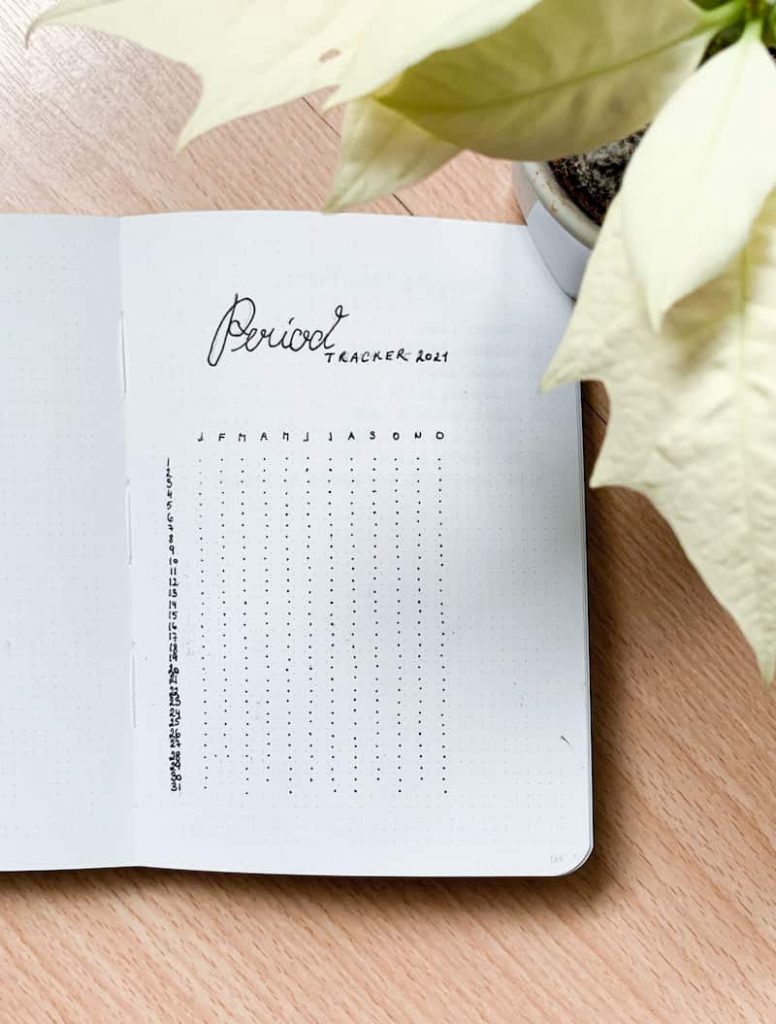 Period
TRACKER 2021
J F M A M J J A S O N D
1
2
3
4
5
6
7
8
9
10
11
12
13
14
15
16
17
18
19
20
21
22
23
24
25
26
27
28
29
30
31